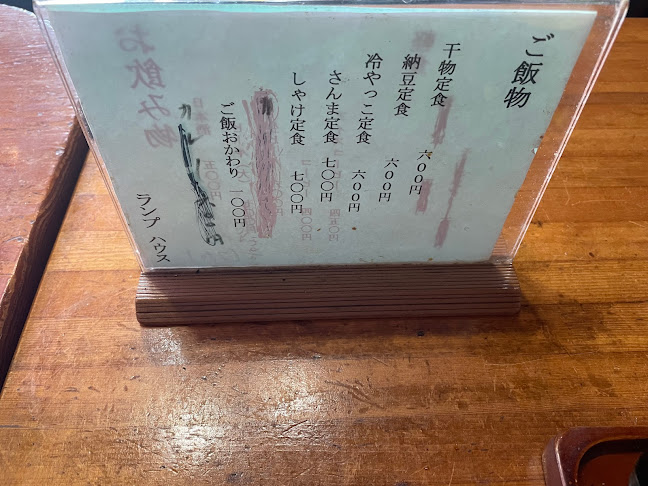 ご飯物
干物定食 六００円
納豆定食 六００円
冷やっこ定食 六００円
さんま定食 七〇〇円
しゃけ定食 七〇〇円
ご飯おかわり 一〇〇円
ランプ ハウス
お飲み物